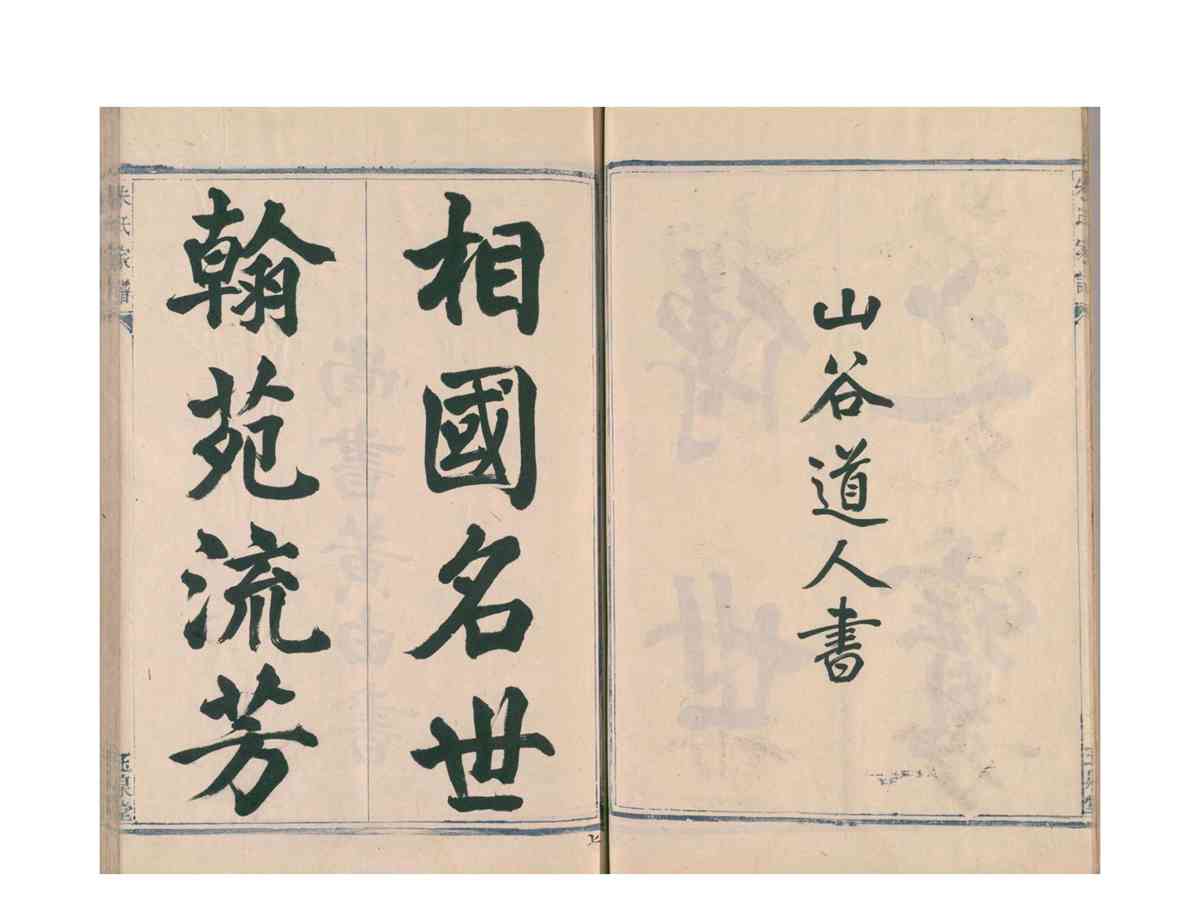 山谷道人書
相國名世
翰苑流芳